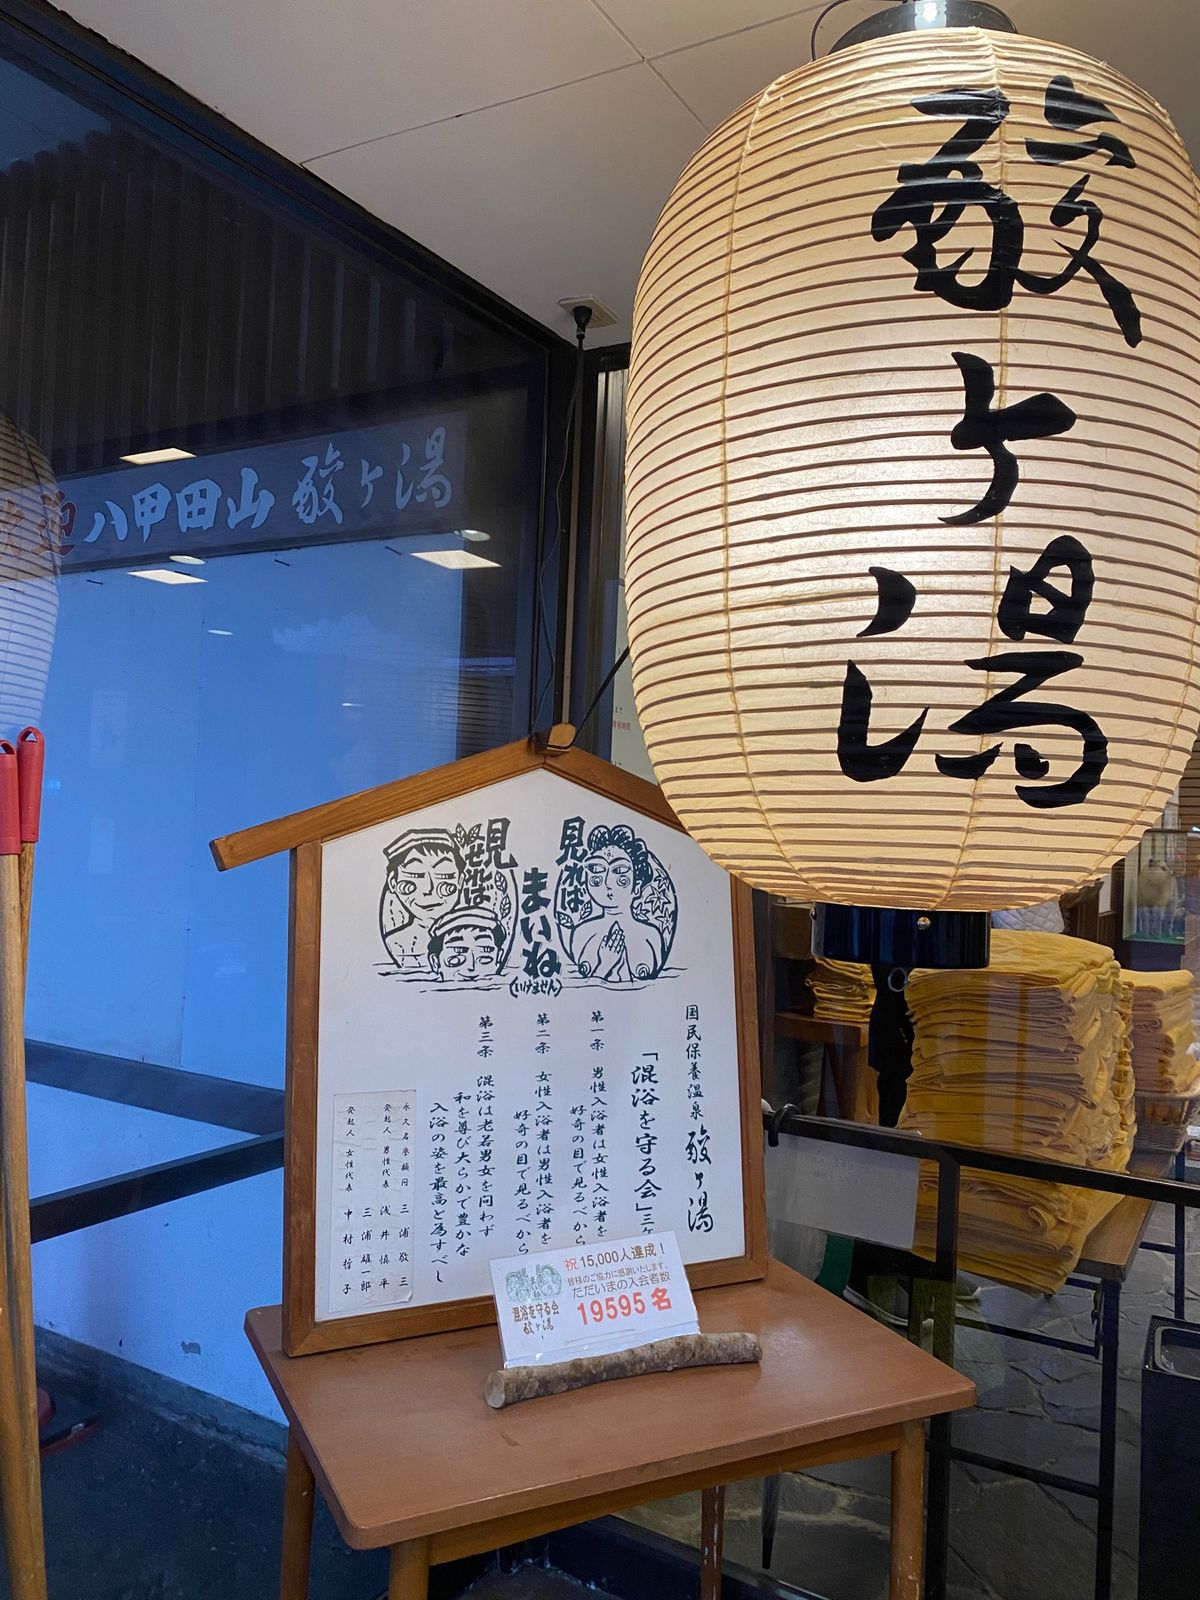 酸ヶ湯
歓迎 八甲田山 酸ヶ湯
見れば
見せれば
まいね
(いけません)
国民保養温泉 酸ヶ湯
「混浴を守る会」三ヶ
第一条 男性入浴者は女性入浴者を
好奇の目で見るべから
第二条 女性入浴者は男性入浴者を
好奇の目で見るべから
第三条 混浴は老若男女を問わず
和を尊び大らかで豊かな
入浴の姿を最高と為すべし
永久名誉顧問 三浦敬三
発起人 男性代表 浅井慎平
三浦雄一郎
発起人 女性代表 中村哲子
祝 15,000人達成!
皆様のご協力に感謝いたします。
ただいまの入会者数
19595 名
混浴を守る会
酸ヶ湯